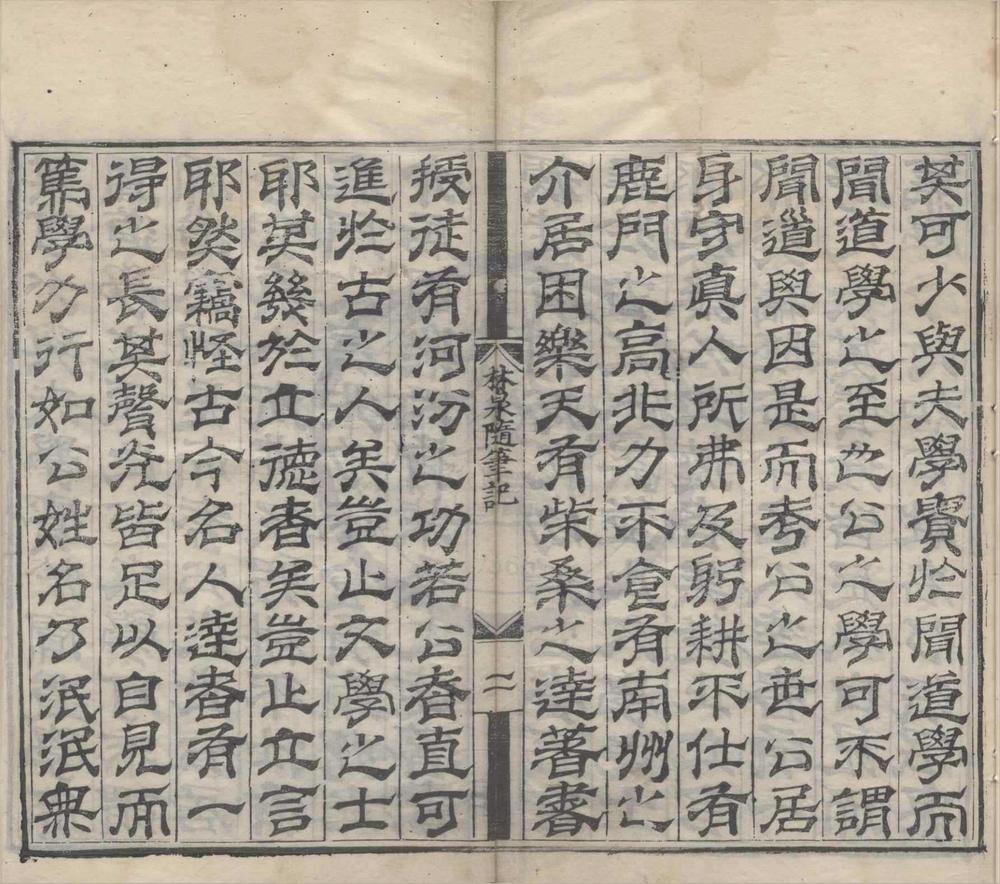 其可少與夫學貴於聞道學而
聞道學之至也公之學可不謂
聞道與因是而考公之世公居
身守真人所弗及躬耕不仕有
鹿門之高非力不食有南州之
介居困樂天有柴桑之達著書
林泉隨筆記
二
授徒有河汾之功若公者直可
進於古之人矣豈止文學之士
耶其幾於立德者矣豈止立言
耶然竊怪古今名人達者有一
得之長其聲光皆足以自見而
篤學力行如公姓名乃泯泯無